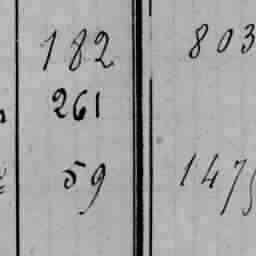 182 803
261
59 147